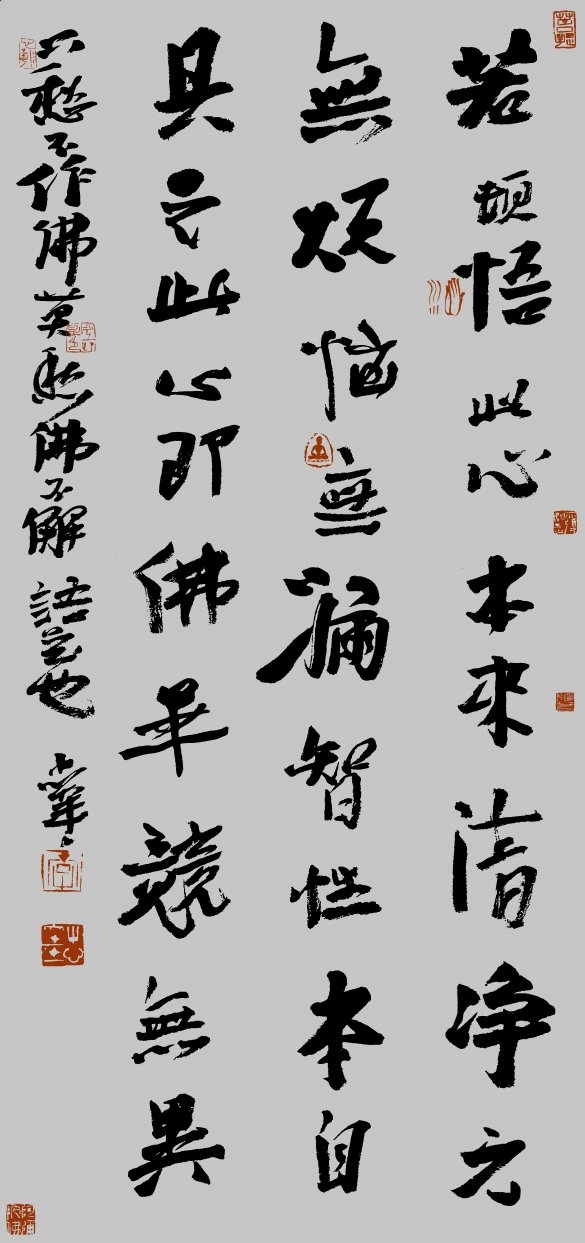 若頓悟此心本來清净元
無煩惱無漏智性本自
具足此心即佛畢競無異
只愁不作佛莫愁佛不解語是也